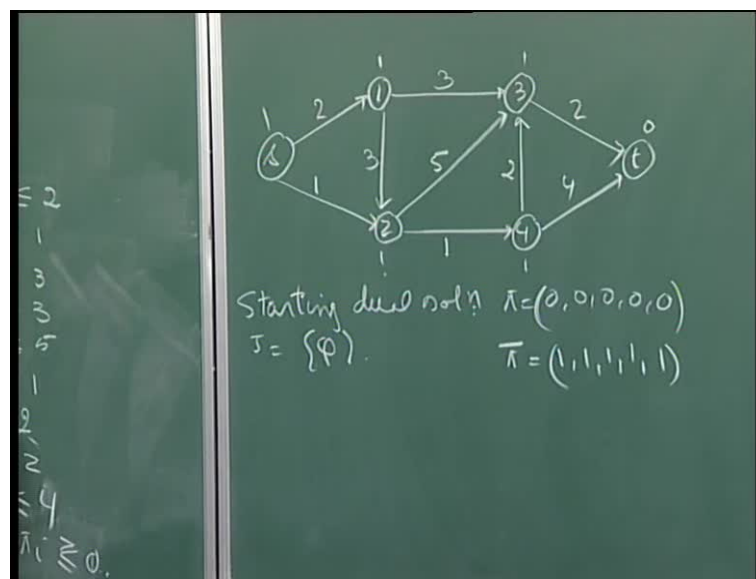 ≤ 2
1
3
3
5
1
2,
2
≤ 4
πi ≥ 0.
1 1
1 2 1 3 3 2 0
s 3 5 2 t
1 2 1 4 4
1 1
Starting dual soln. π=(0,0,0,0,0)
J = {φ}. π̄ = (1,1,1,1,1)